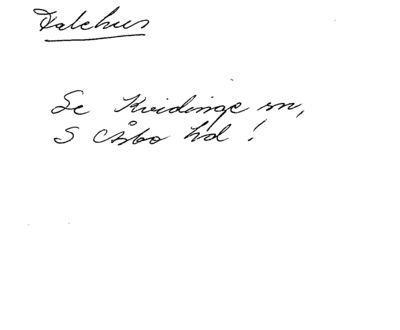 Kalehus
Se Kvidinge sn,
S Åsbo hd !